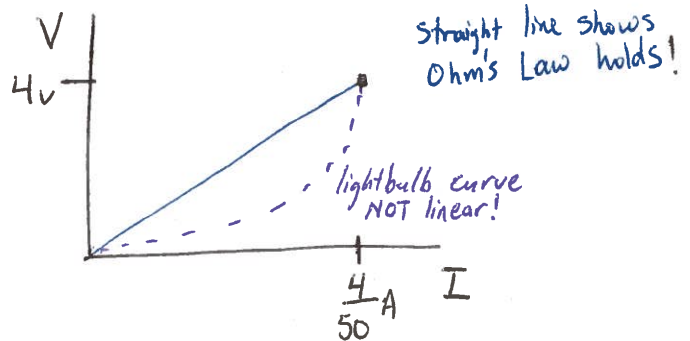 V
straight line shows
Ohm's Law holds!
4v
lightbulb curve
NOT linear!
4
50
A
I